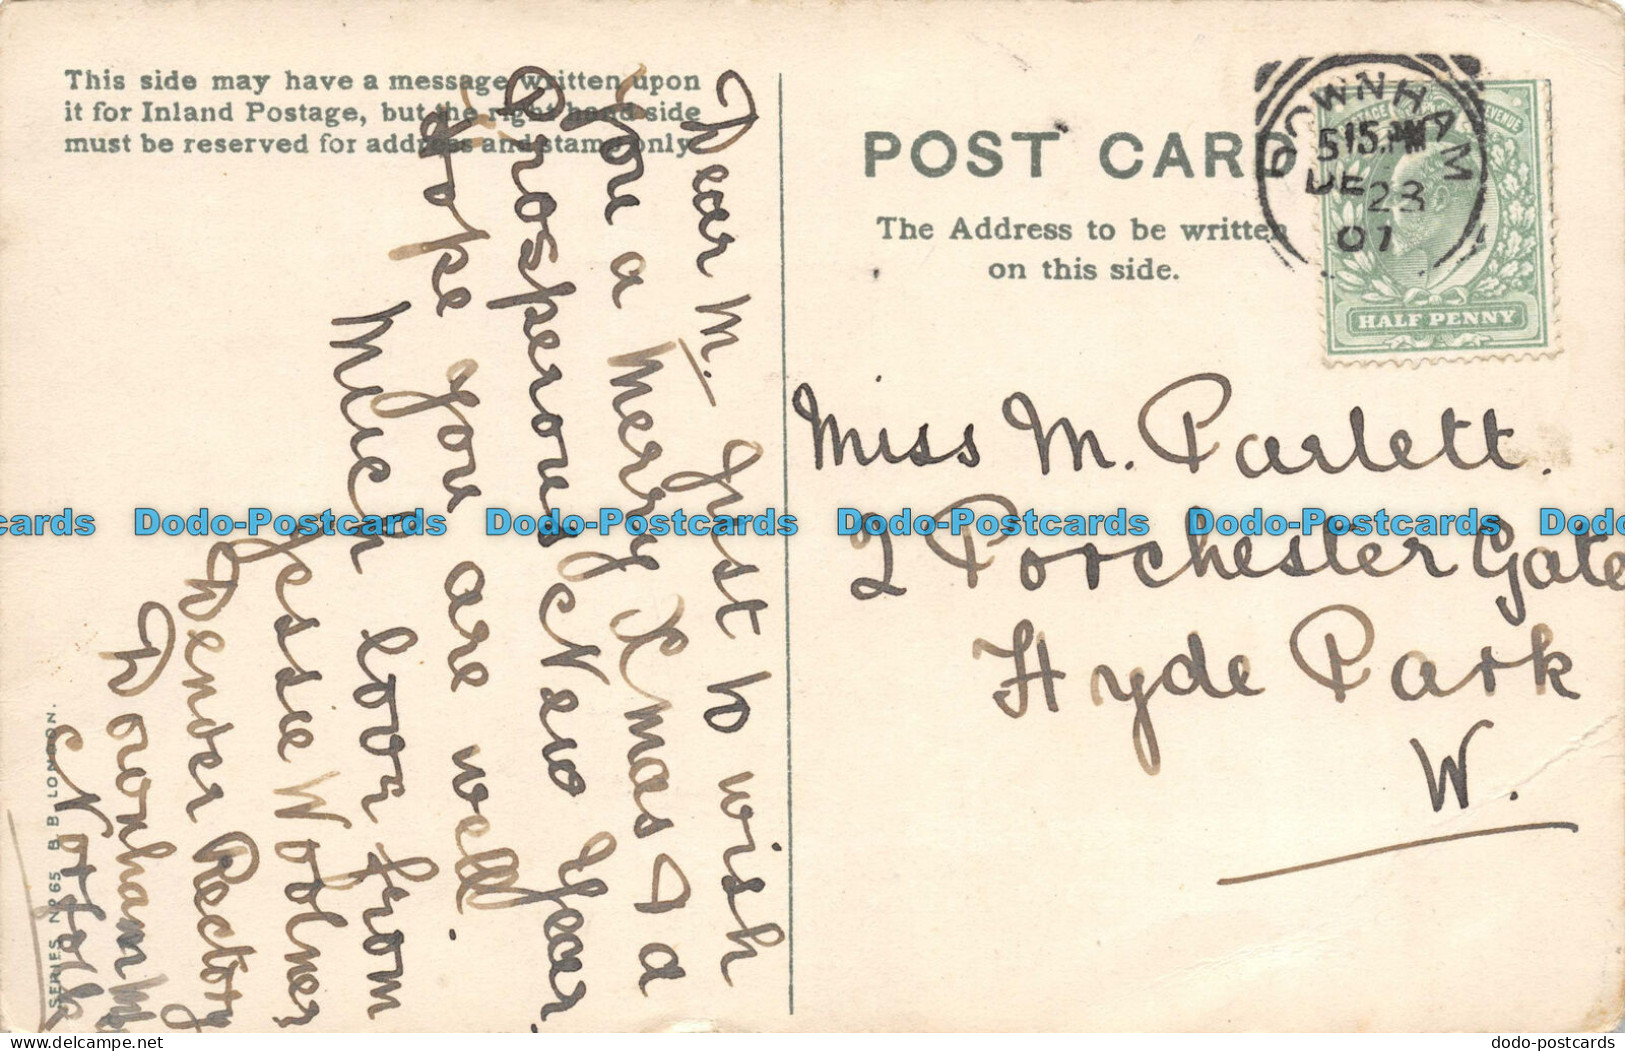 This side may have a message written upon
it for Inland Postage, but the right hand side
must be reserved for address and stamp only.
POST CARD
The Address to be written
on this side.
DOWNHAM
5.15.PM
DE 23
07
HALF PENNY
Dear M. Just to wish
you a Merry Xmas & a
Prosperous New Year
Hope you are well.
Much love from
Jessie Wolner
Denver Rectory
Downham M
Norfolk
Miss M. Parlett.
2 Porchester Gate
Hyde Park
W.
SERIES Nº 65 B.B LONDON.
Dodo-Postcards Dodo-Postcards Dodo-Postcards Dodo-Postcards
delcampe.net
dodo-postcards